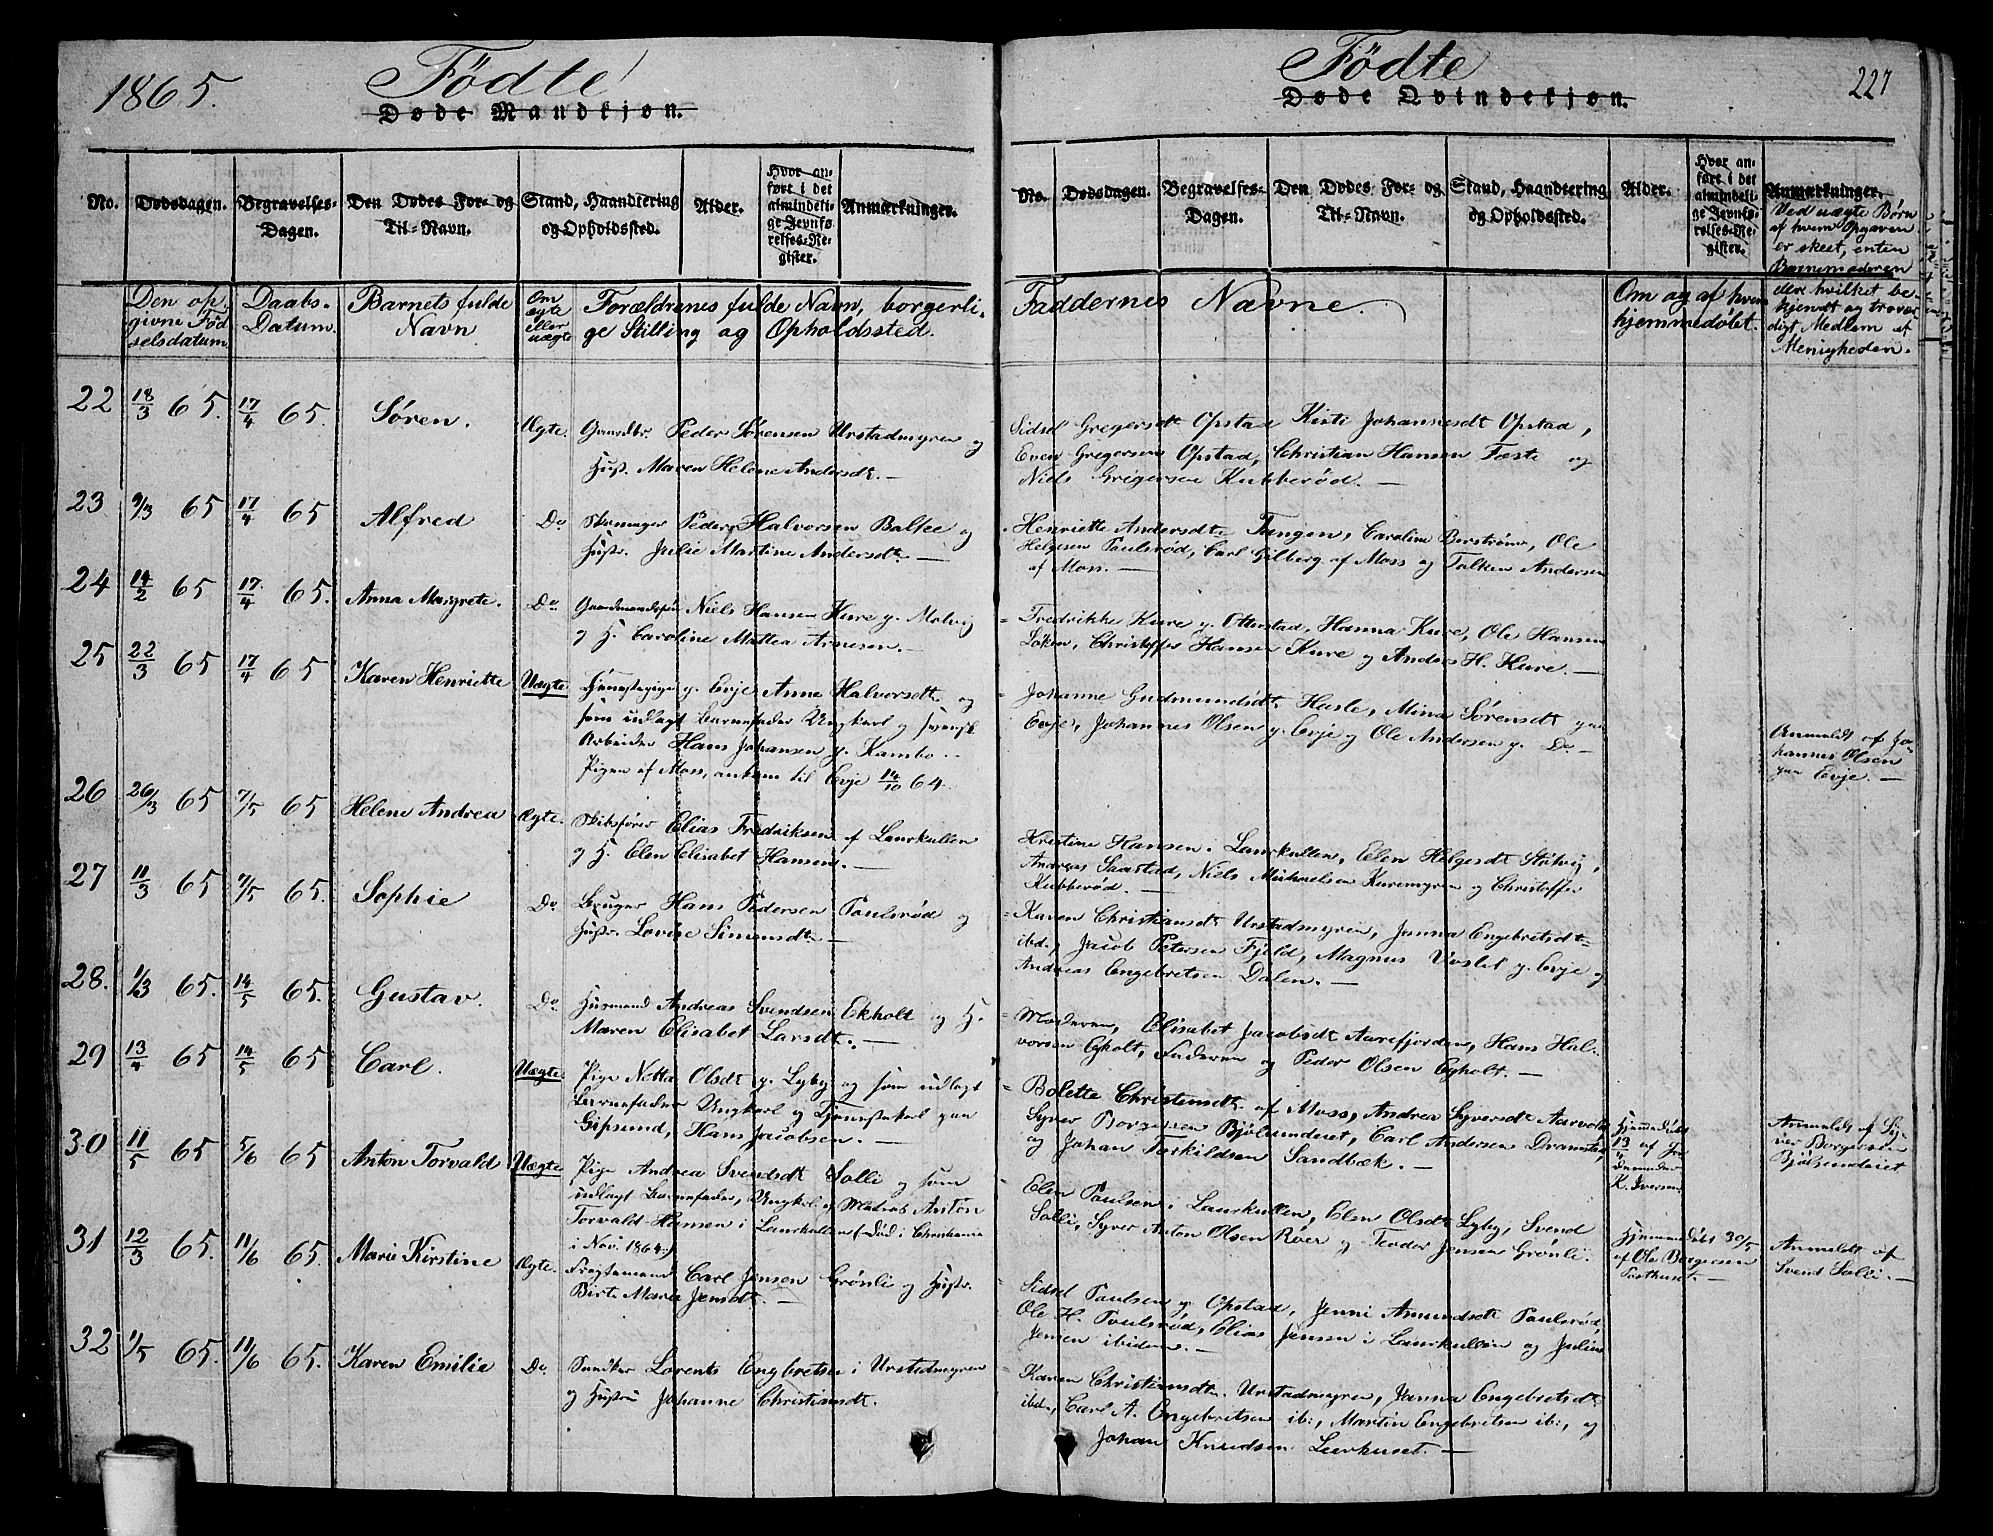 1865.
Födte
Døde Mandkjøn.
No. Dødsdagen. Begravelses-Dagen. Den Dødes For- og Til-Navn. Stand, Haandtering og Opholdssted. Alder. Hvor anført i det almindelige Jevnførelses-Register. Anmærkninger.
Den opgivne Födselsdatum Daabs-Datum. Barnets fulde Navn Om ægte eller uægte Forældrenes fulde Navn, borgerlige Stilling og Opholdssted.
22 18/3 65. 17/4 65. Søren. Ægte. Gaardbr. Peder Sørensen Urstadmyren og
Hust. Maren Helene Andersdt. —
23 9/3 65 17/4 65 Alfred Do Peder Halvorsen Baltee og
Hustr. Julie Martine Andersdt. —
24 14/2 65 17/4 65. Anna Margrete. Do Gaardmandssøn Niels Hansen Kure p. Molvig
og H. Caroline Mattea Arnesen. —
25 22/3 65 17/4 65 Karen Henriette Uægte Tjenestepige p. Evje Anne Halvorsdt. og
som udlagt Barnefader Ungkarl og
Arbeider Hans Johansen p. Kambo. —
Pigen af Moss, ankom til Evje 14/10 64.
26 26/3 65 7/5 65 Helene Andrea Ægte. Skibsfører Elias Fredriksen af Laurkullen
og H. Elen Elisabet Hansen. —
27 11/3 65 7/5 65. Sophie Do Bruger Hans Pedersen Paulsrød og
Hustr. Lovise Simensdt. —
28. 1/3 65. 14/5 65. Gustav. Do Husmand Andreas Svendsen Ekholt og H.
Maren Elisabet Larsdt. —
29 13/4 65 14/5 65 Carl. Uægte Pige Netta Olsdt p. Lyby og som udlagt
Barnefader Ungkarl og Tjenestekarl paa
Gipsund, Hans Jacobsen. —
30 11/5 65 5/6 65 Anton Torvald Uægte Pige Andrea Svendsdt Solli og som
udlagt Barnefader, Ungkarl og Matros Anton
Torvald Hansen i Laurkullen (Död i Christiania
i Nov. 1864.)
31 12/3 65. 11/6 65. Marie Kirstine Ægte. Fragtemand Carl Jensen Grönli og Hustr.
Birte Marie Jensdt. —
32 1/5 65. 11/6 65. Karen Emilie Do Snedker Lorents Engbretsen i Urstadmyren
og Hustru Johanne Christiansdt.
Födte
227
Døde Qvindekjøn.
No. Dødsdagen. Begravelses-Dagen. Den Dødes For- og Til-Navn. Stand, Haandtering og Opholdssted. Alder. Hvor anført i det almindelige Jevnførelses-Register. Anmærkninger.
Faddernes Navne. Om og af hvem hjemmedøbt.
Ved uægte Børn
af hvem Opgaven
er skeet, enten
Barnemoderen
eller hvilket be-
kjendt og trovær-
digt Medlem af
Menigheden.
Sidsel Gregersdt Opstad Kisti Johannesdt Opstad,
Even Gregersens Opstad, Christian Hansen Fæste og
Niels Gregersen Kubberød. —
Henriette Andersdt Tangen, Caroline Berström, Ole
Helgesen Paulsrød, Carl Gilberg af Moss og Falken Andersen
af Moss. —
Fredrikke Kure p. Otterstad, Hanna Kure, Ole Hansen
Løken, Christoffer Hansen Kure og Anders H. Kure. —
Johanne Gudmundsdt Hasle, Mina Sørensdt paa
Evje, Johannes Olsen p. Evje og Ole Andersen p. Do —
Anmeldt af Jo-
hannes Olsen
paa Evje. —
Kristine Hansen i Laurkullen, Elen Helgesdt Støtvig,
Andreas Saastad, Niels Michaelsen Kuremyren og Christoffer
Kubberød. —
Karen Christiansdt Urstadmyren, Janna Engebretsdt
ibd., Jacob Petersen Fjeld, Magnus Voslet p. Evje og
Andreas Engebretsen Dalen. —
Moderen, Elisabet Jacobsdt Aarefjorden, Hans Hal-
vorsen Egholt, Faderen og Peder Olsen Egholt. —
Bolette Christensdt af Moss, Andrea Syversdt Aarvold,
Syver Borgersen Bjölsundeiet, Carl Andersen Dramstad,
og Johan Torkildsen Sandbæk. —
Hjemmedöbt
13/4 af Jor-
demoder
K. Iversen
Anmeldt af Sy-
ver Borgersen
Bjölsundeiet
Elen Paulsen i Laurkullen, Elen Olsdt Lyby, Svend
Solli, Syver Anton Olsen Röer og Teodor Jensen Grönli.
Hjemmedöbt 30/5
af Ole Borgersen
Posthuset. —
Anmeldt af
Svend Solli. —
Sidsel Paulsen p. Opstad, Jenni Amundsdt Paulsrød,
Ole H. Paulsrød, Elias Jensen i Laurkullen og Julius
Jensen ibidem. —
Karen Christiansdt. Urstadmyren, Janna Engebretsdt
ibd., Carl A. Engebretsen ib:, Martin Engebretsen ib:, og
Johan Knudsen Leerhuset. —